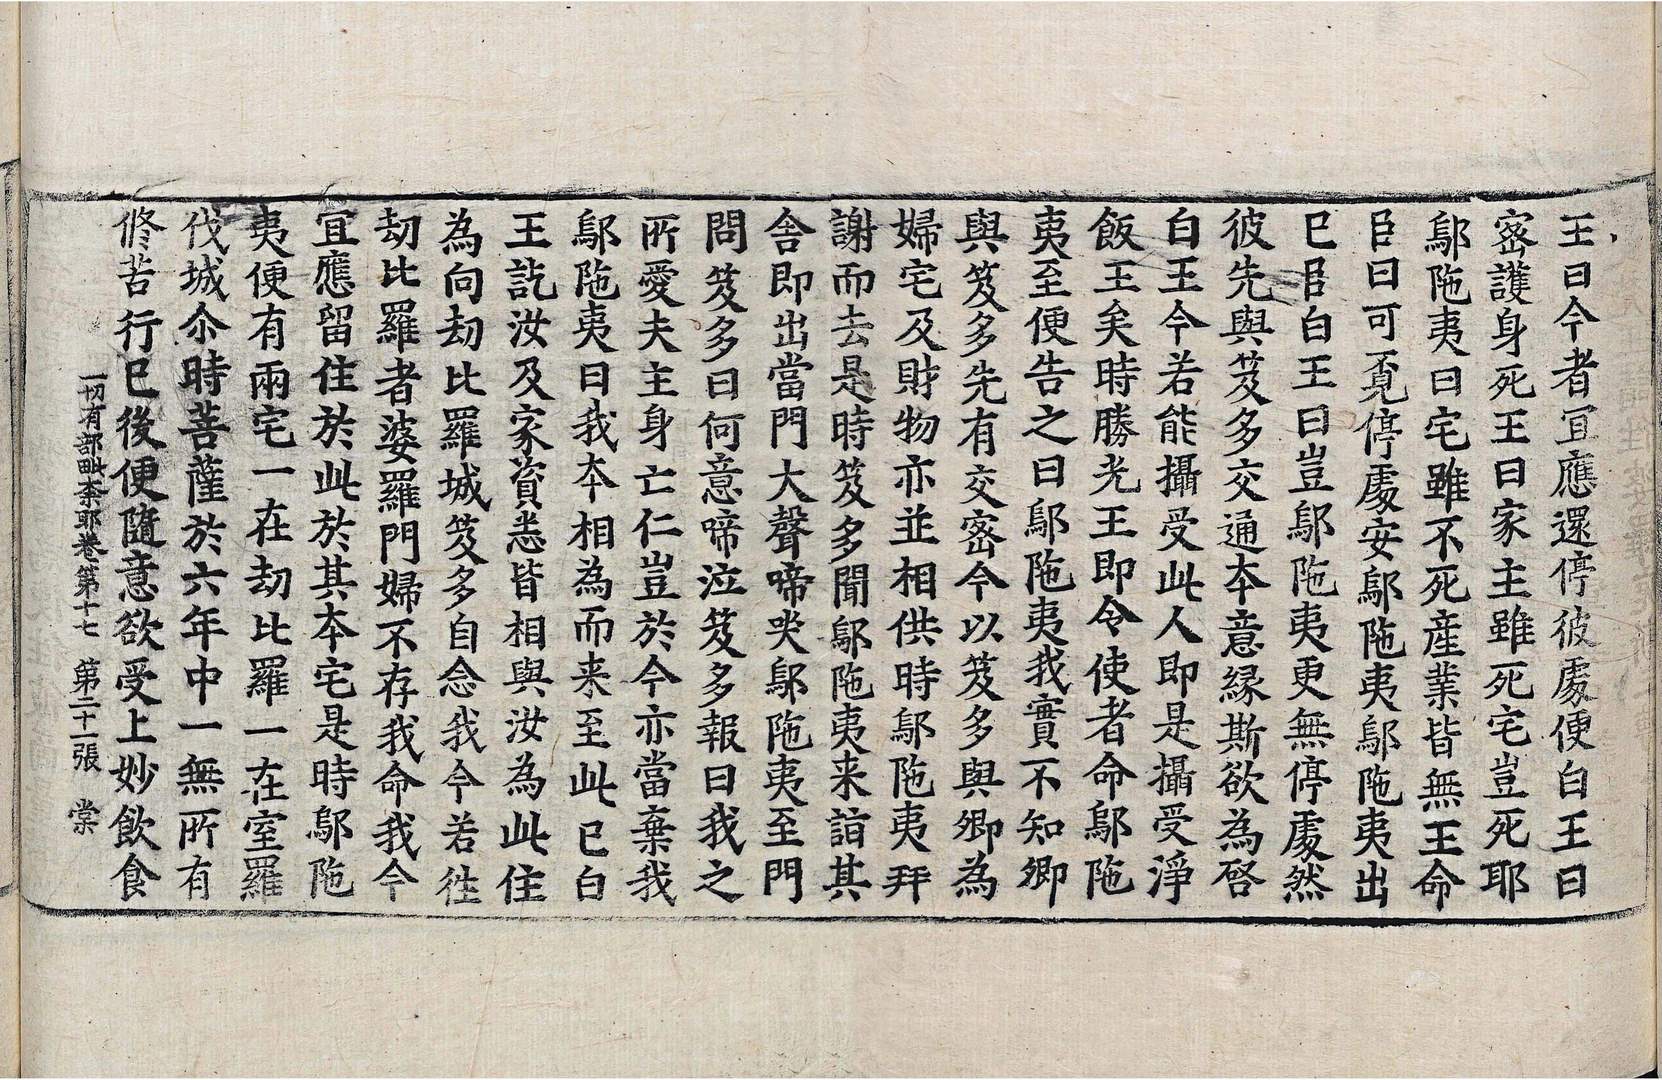 王曰今者宜應還停彼處便白王曰
密護身死王曰家主雖死宅豈死耶
鄔陁夷曰宅雖不死産業皆無王命
臣曰可覔停處安鄔陁夷鄔陁夷出
已臣白王曰豈鄔陁夷更無停處然
彼先與笈多交通本意縁斯欲為啓
白王今若能攝受此人即是攝受淨
飯王矣時勝光王即令使者命鄔陁
夷至便告之曰鄔陁夷我實不知卿
與笈多先有交密今以笈多與卿為
婦宅及財物亦並相供時鄔陁夷拜
謝而去是時笈多聞鄔陁夷来詣其
舎即出當門大聲啼哭鄔陁夷至門
問笈多曰何意啼泣笈多報曰我之
所愛夫主身亡仁豈於今亦當棄我
鄔陁夷曰我本相為而来至此已白
王訖汝及家資悉皆相與汝為此住
為向劫比羅城笈多自念我今若往
劫比羅者婆羅門婦不存我命我今
宜應留住於此於其本宅是時鄔陁
夷便有兩宅一在劫比羅一在室羅
伐城尒時菩薩於六年中一無所有
修苦行已後便隨意欲受上妙飲食
一切有部毗柰耶卷第十七　第二十一張　棠